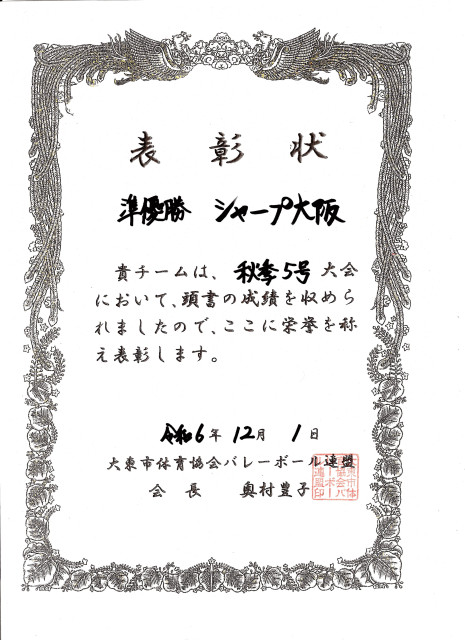 表彰状
準優勝 シャープ大阪
貴チームは、秋季5号大会
において、頭書の成績を収めら
れましたので、ここに栄誉を称
え表彰します。
令和6年12月1日
大東市体育協会バレーボール連盟
会長 奥村豊子